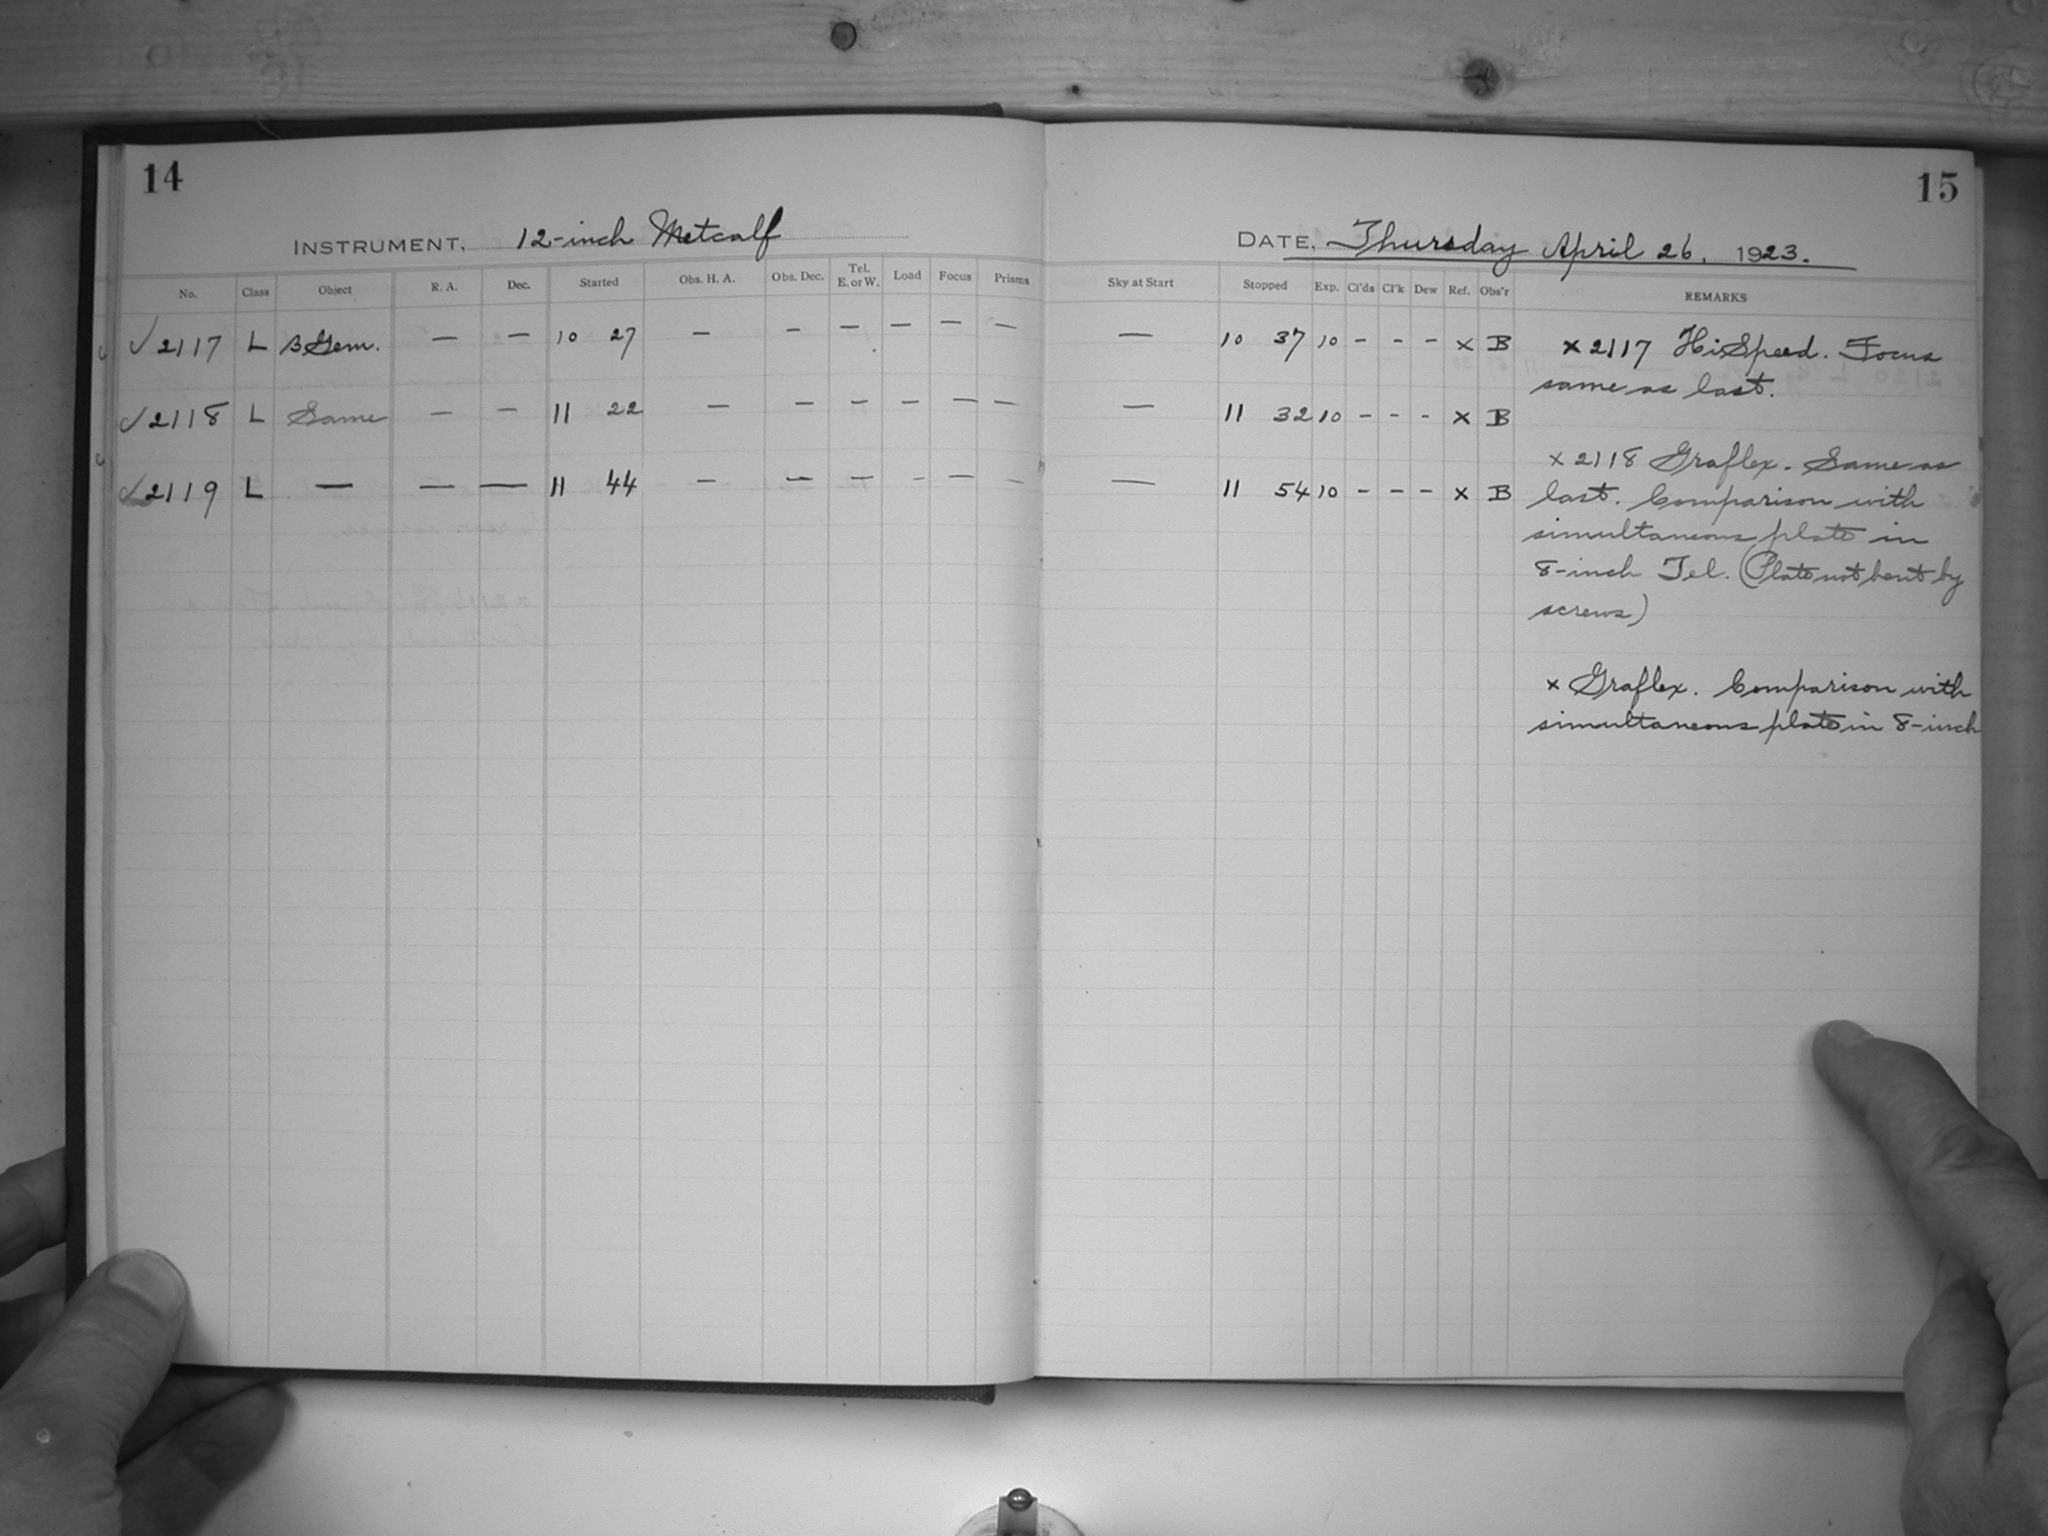 14
INSTRUMENT, 12-inch Metcalf
No. Class Object R. A. Dec. Started Obs. H. A. Obs. Dec. Tel. E. or W. Load Focus Prisms
✓ 2117 L B Gem. — — 10 27 — — — — — —
✓ 2118 L Same — — 11 22 — — — — — —
✓ 2119 L — — — 11 44 — — — - — -
15
DATE, Thursday April 26, 1923.
Sky at Start Stopped Exp. Cl'ds Cl'k Dew Ref. Obs'r REMARKS
— 10 37 10 - - - x B
— 11 32 10 - - - x B
— 11 54 10 - - - x B
x 2117 Hi Speed. Focus
same as last.
x 2118 Graflex. Same as
last. Comparison with
simultaneous plate in
8-inch Tel. (Plate not bent by
screws)
x Graflex. Comparison with
simultaneous plate in 8-inch